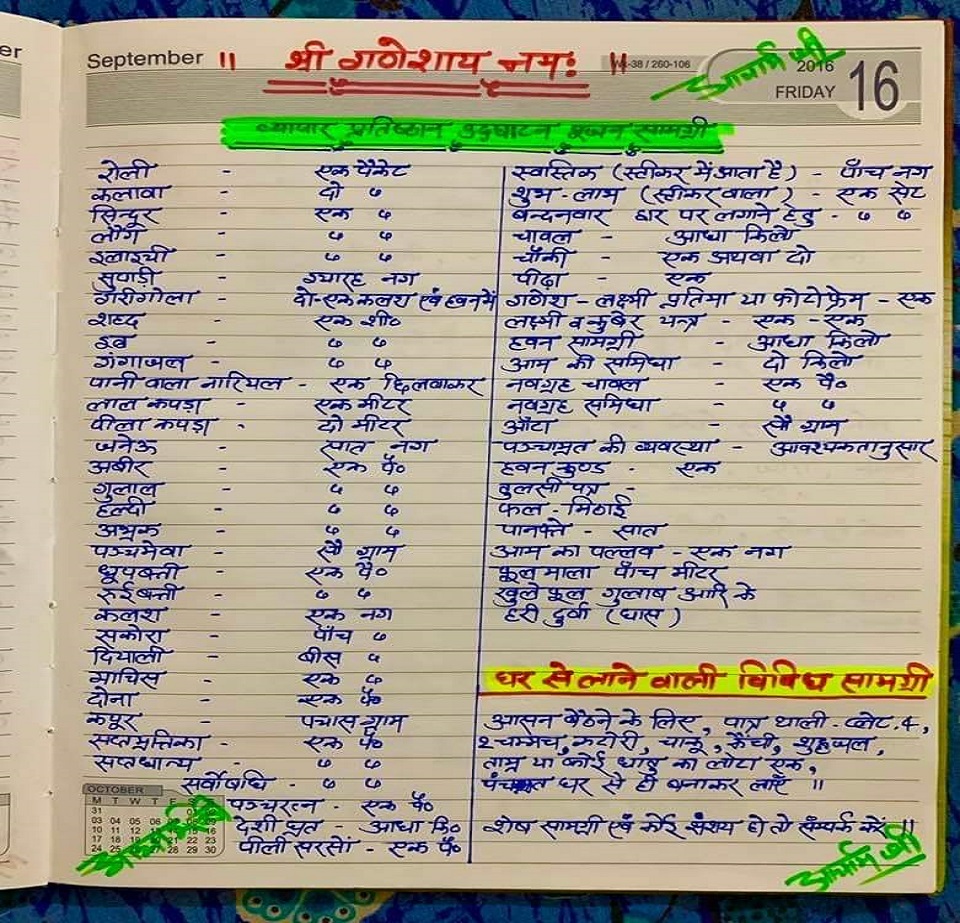 er
September
॥ श्री गणेशाय नमः ॥
Wk-38 / 260-106
2016
FRIDAY 16
आचार्य श्री
व्यापार प्रतिष्ठान उद्घाटन पूजन सामग्री
रोली - एक पैकेट
कलावा - दो ७
सिन्दूर - एक ७
लौंग - ७ ७
इलाइची - ७ ७
सुपाड़ी - ग्यारह नग
गरीगोला - दो-एक कलश एवं हवन में
शहद - एक शी०
इत्र - ७ ७
गंगाजल - ७ ७
पानी वाला नारियल - एक छिलवाकर
लाल कपड़ा - एक मीटर
पीला कपड़ा - दो मीटर
जनेऊ - सात नग
अबीर - एक पै०
गुलाल - ७ ७
हल्दी - ७ ७
अभ्रक - ७ ७
पञ्चमेवा - सौ ग्राम
धूपबत्ती - एक पै०
रुईबत्ती - ७ ७
कलश - एक नग
सकोरा - पाँच ७
दियाली - बीस ७
माचिस - एक ७
दोना - एक पै०
कपूर - पचास ग्राम
सप्तमृत्तिका - एक पै०
सप्तधान्य - ७ ७
सर्वोषधि - ७ ७
पञ्चरत्न - एक पै०
देशी घृत - आधा कि०
पीली सरसो - एक पै०
स्वास्तिक (स्टीकर में आता है) - पाँच नग
शुभ-लाभ (स्टीकर वाला) - एक सेट
बन्दनवार द्वार पर लगाने हेतु - ७ ७
चावल - आधा किलो
चौकी - एक अथवा दो
पीढ़ा - एक
गणेश-लक्ष्मी प्रतिमा या फोटोफ्रेम - एक
लक्ष्मी व कुबेर यन्त्र - एक-एक
हवन सामग्री - आधा किलो
आम की समिधा - दो किलो
नवग्रह चावल - एक पै०
नवग्रह समिधा - ७ ७
आँटा - सौ ग्राम
पञ्चामृत की व्यवस्था - आवश्यकतानुसार
हवन कुण्ड - एक
तुलसी पत्र -
फल-मिठाई
पानपत्ते - सात
आम का पल्लव - एक नग
फूल माला पाँच मीटर
खुले फूल गुलाब आदि के
हरी दुर्वा (घास)
घर से लाने वाली विविध सामग्री
आसन बैठने के लिए, पात्र थाली-प्लेट.4,
२ चम्मच, कटोरी, चाकू, कैंची, शुद्धजल,
ताम्र या कोई धातु का लोटा एक,
पंचामृत घर से ही बनाकर लाएँ ॥
शेष सामग्री एवं कोई संशय हो तो सम्पर्क करें ॥
आचार्य श्री
OCTOBER
M T W T F S S
31 01 02
03 04 05 06 07 08 09
10 11 12 13 14 15 16
17 18 19 20 21 22 23
24 25 26 27 28 29 30
आचार्य श्री